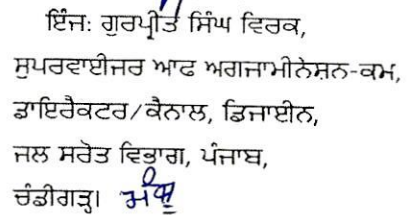 ਇੰਜ: ਗੁਰਪ੍ਰੀਤ ਸਿੰਘ ਵਿਰਕ,
ਸੁਪਰਵਾਈਜਰ ਆਫ ਅਗਜਾਮੀਨੇਸ਼ਨ-ਕਮ,
ਡਾਇਰੈਕਟਰ/ਕੈਨਾਲ, ਡਿਜਾਈਨ,
ਜਲ ਸਰੋਤ ਵਿਭਾਗ, ਪੰਜਾਬ,
ਚੰਡੀਗੜ੍ਹ।